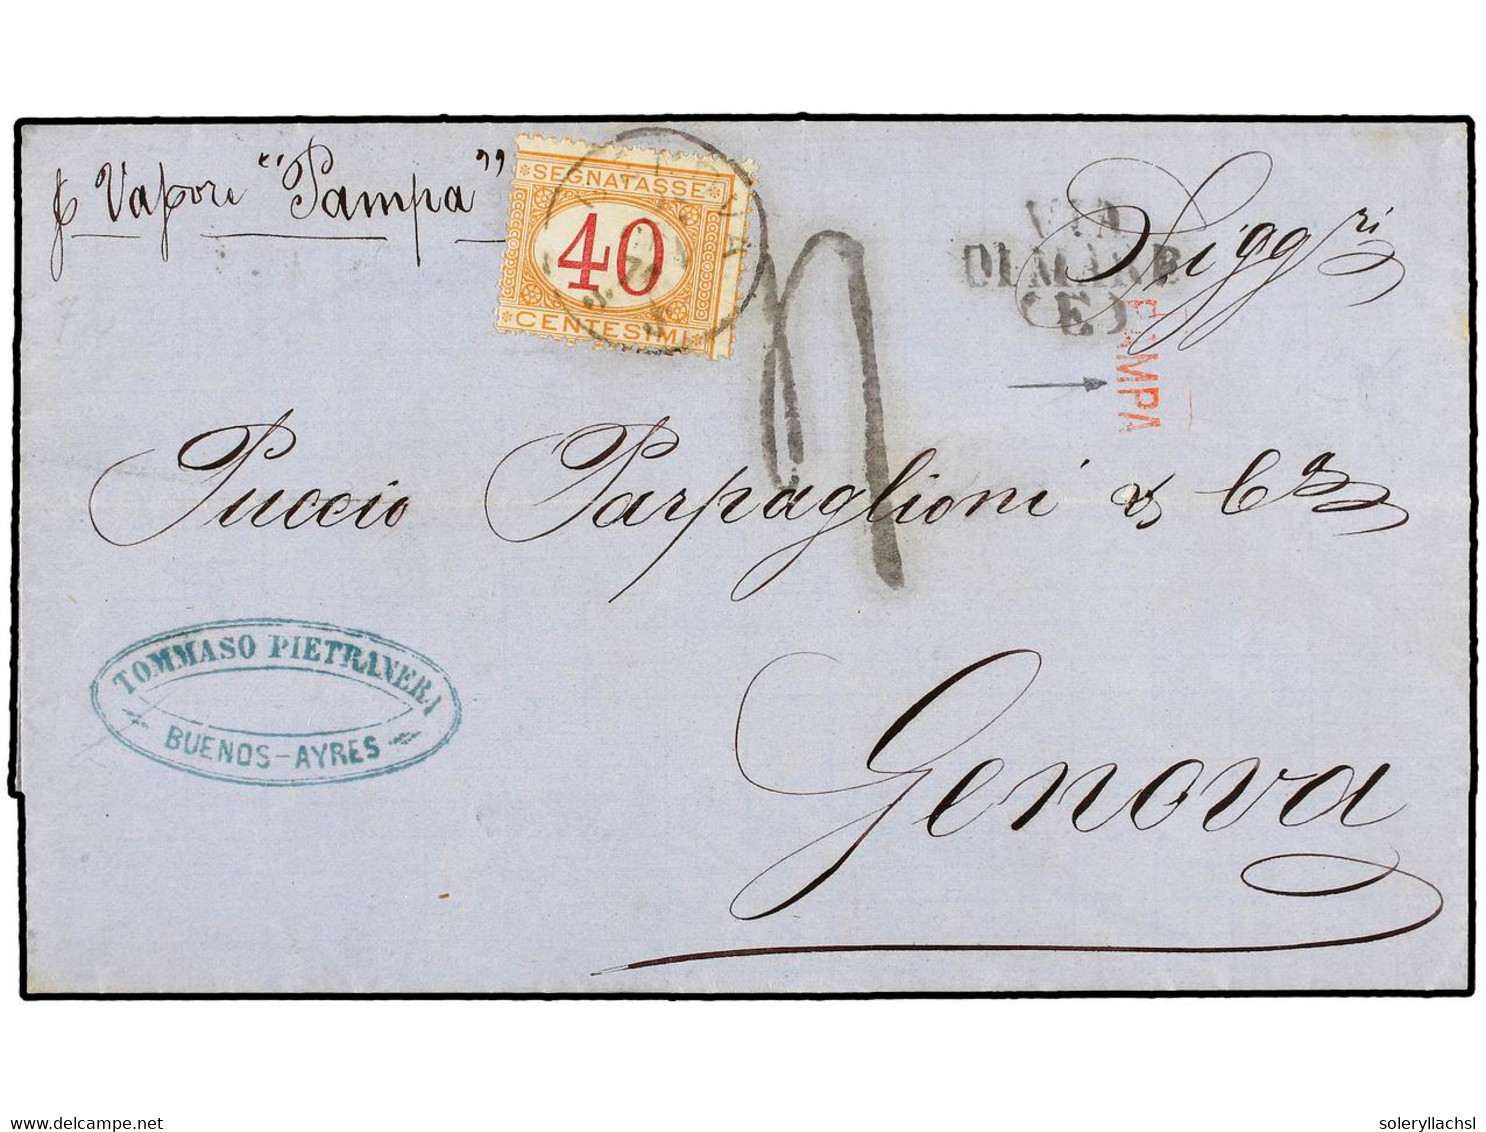 p Vapore "Pampa"
SEGNATASSE
40
CENTESIMI
VIA
DI MARE
(E)
PAMPA
Sigg.ri
Puccio Parpaglioni & C.
Genova
TOMMASO PIETRANERA
BUENOS-AYRES
www.delcampe.net
soleryllachsl